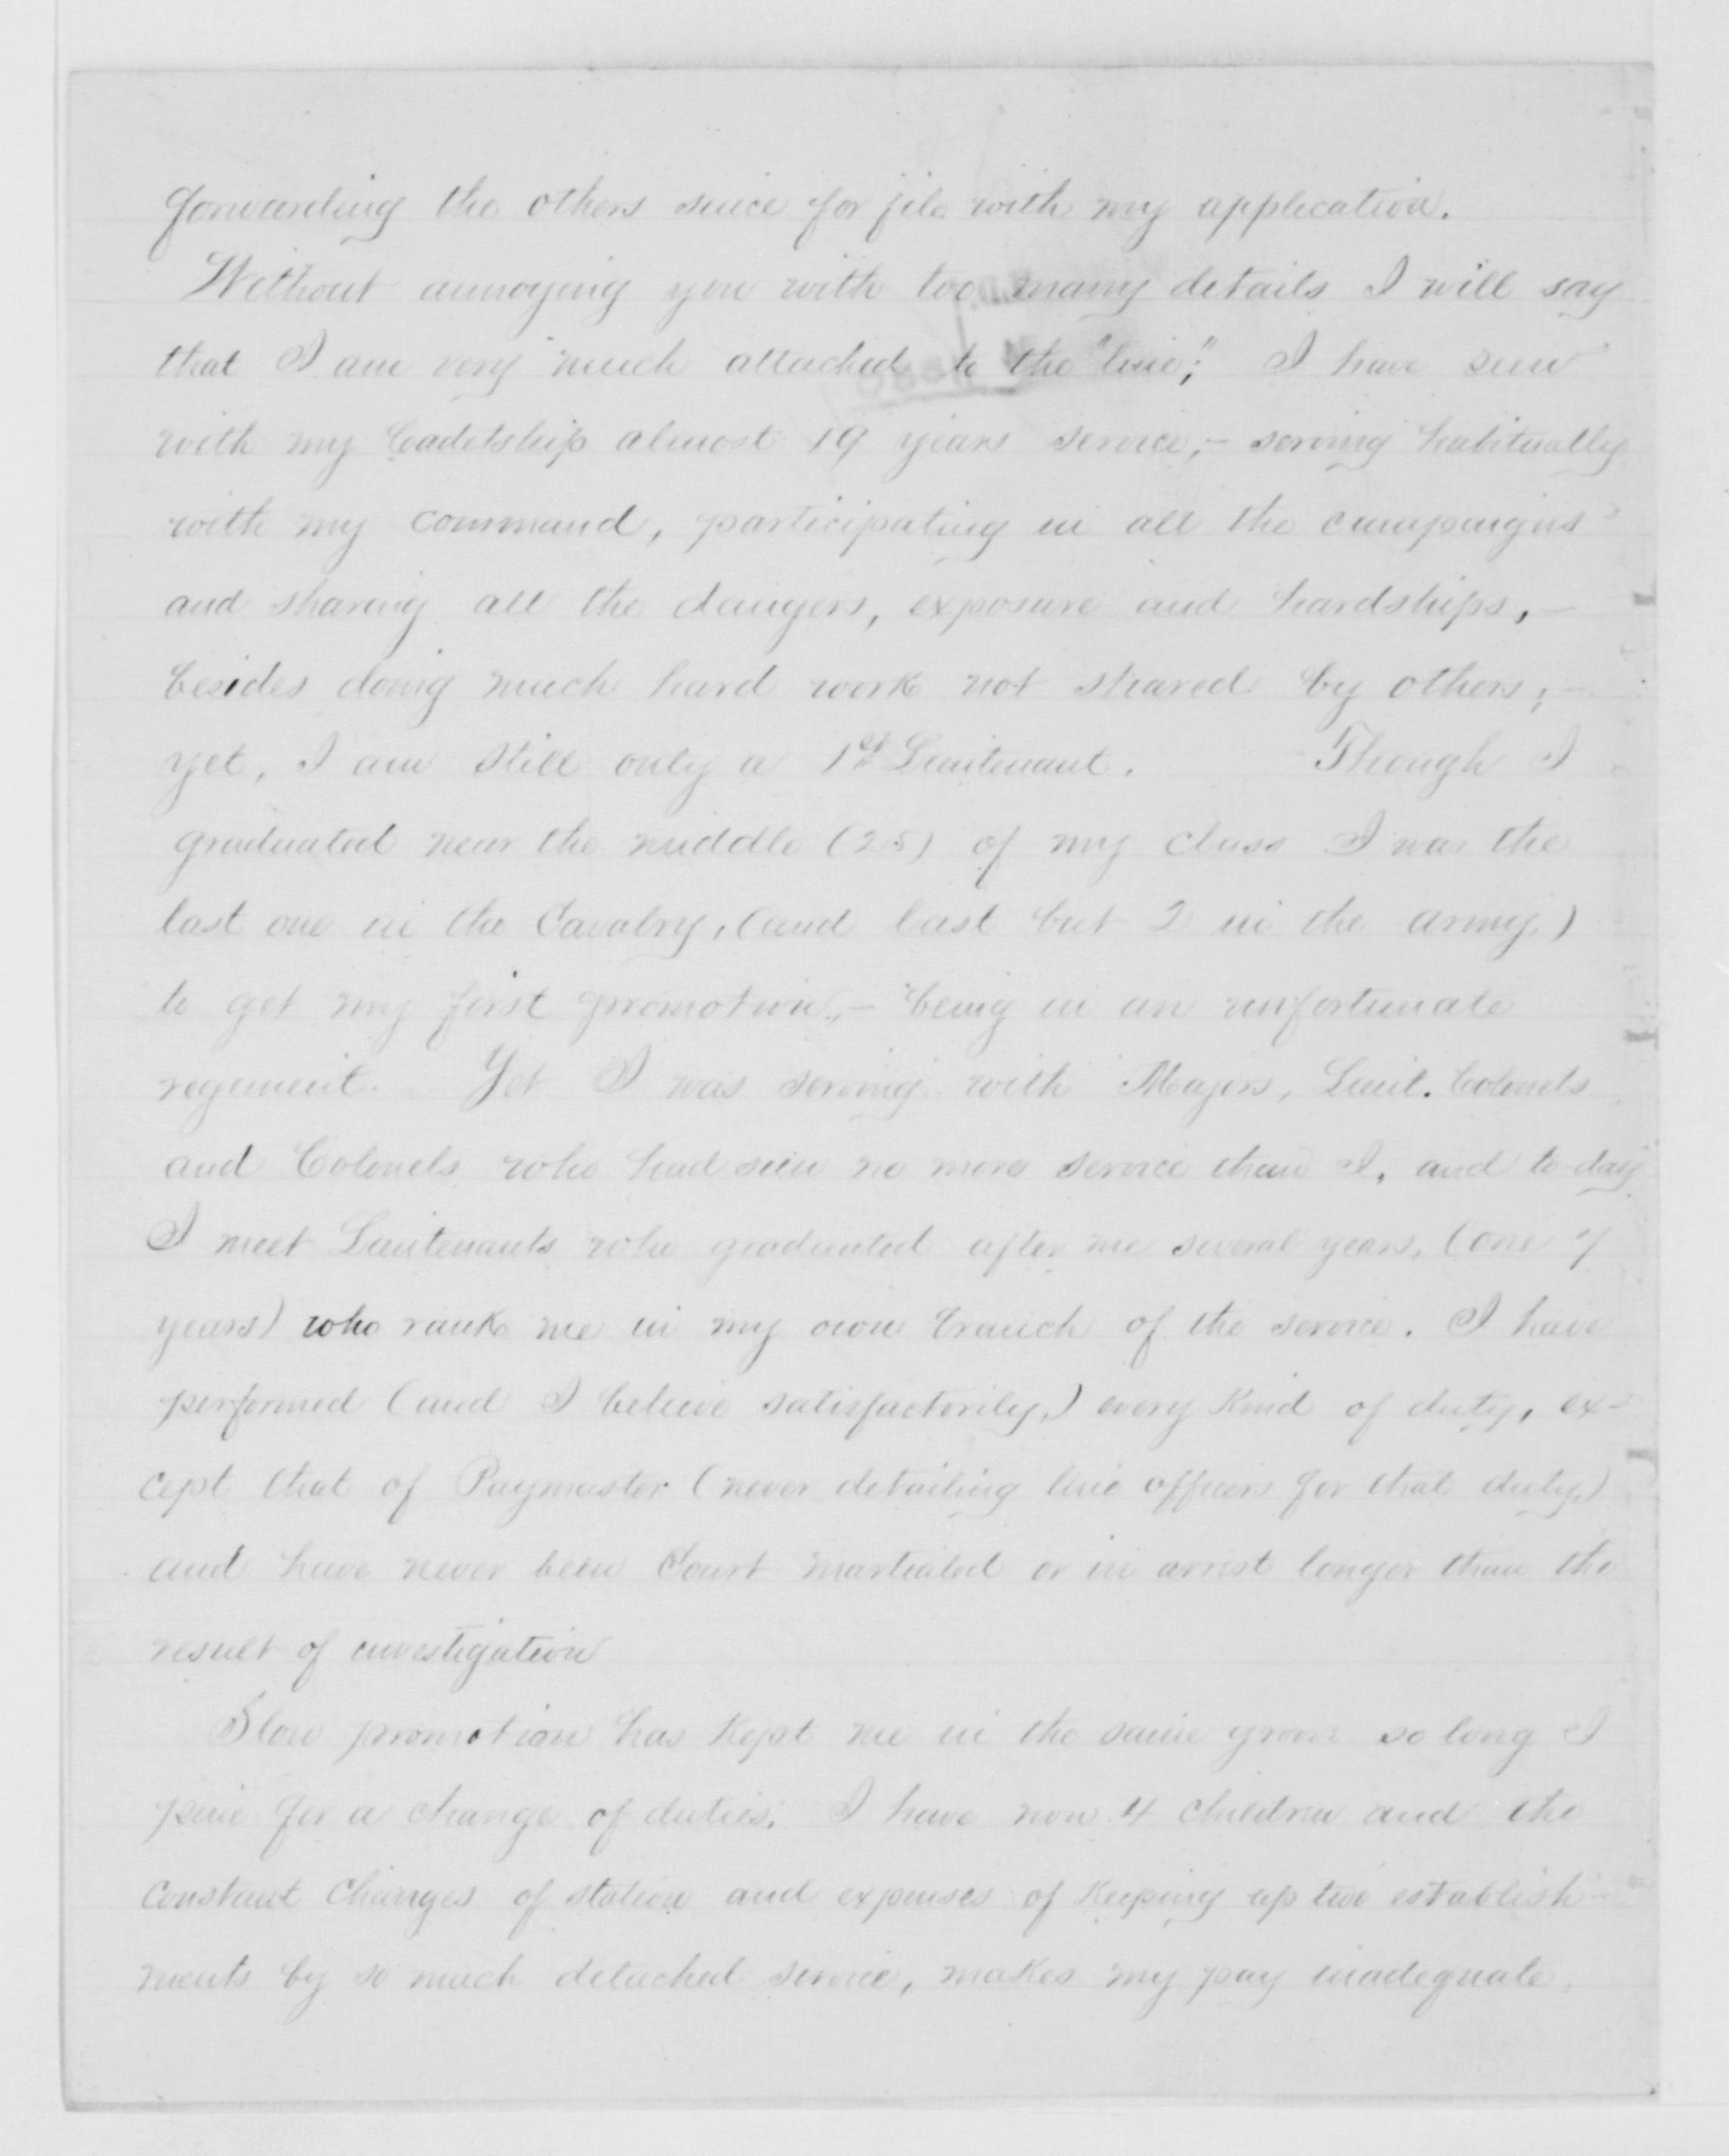 forwarding the others since for file with my application.
Without annoying you with too many details I will say
that I am very much attached to the "line"; I have seen
with my Cadetship almost 19 years service,- serving habitually
with my command, participating in all the campaigns
and sharing all the dangers, exposure and hardships,-
besides doing much hard work not shared by others;-
yet, I am still only a 1st Lieutenant. Though I
graduated near the middle (25) of my class I was the
last one in the Cavalry, (and last but 2 in the army,)
to get my first promotion,- being in an unfortunate
regiment. Yet I was serving with Majors, Lieut. Colonels
and Colonels who had seen no more service than I, and to-day
I meet Lieutenants who graduated after me several years, (one 7
years) who rank me in my own branch of the service. I have
performed (and I believe satisfactorily,) every kind of duty, ex-
cept that of Paymaster (never detailing line officers for that duty,)
and have never been Court martialed or in arrest longer than the
result of investigation
Slow promotion has kept me in the same groove so long I
pine for a change of duties. I have now 4 children and the
constant changes of station and expenses of keeping up two establish-
ments by so much detached service, makes my pay inadequate.